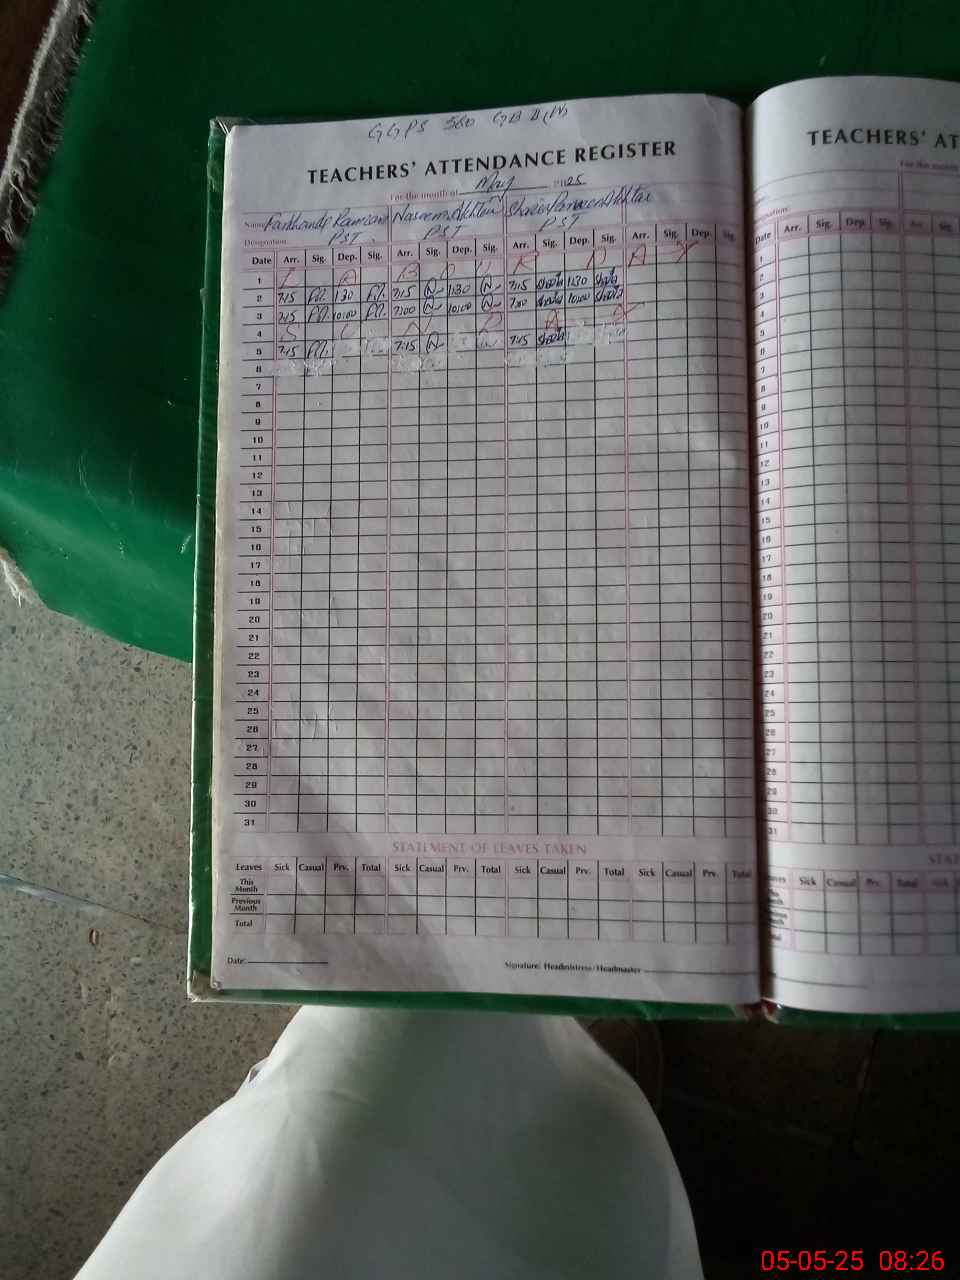 GGPS 560 GB
TEACHERS' ATTENDANCE REGISTER
For the month of May 2025
Name Farkhanda Naseem Akhtar Parveen Akhtar
Designation PST PST PST
Date Arr. Sig. Dep. Sig. Arr. Sig. Dep. Sig. Arr. Sig. Dep. Sig. Arr. Sig. Dep. Sig.
1 L A B O U R D A Y
2 7:15 1:30 7:15 1:30 7:15 1:30
3 7:15 10:00 7:00 10:00 7:00 10:00
4 S U N D A Y
5 7:15 7:15 7:15
6
7
8
9
10
11
12
13
14
15
16
17
18
19
20
21
22
23
24
25
26
27
28
29
30
31
STATEMENT OF LEAVES TAKEN
Leaves Sick Casual Prv. Total Sick Casual Prv. Total Sick Casual Prv. Total Sick Casual Prv. Total
This Month
Previous Month
Total
Date:
Signature: Headmistress/Headmaster
TEACHERS' AT
For the month
Date Arr. Sig. Dep. Sig. Arr. Sig.
1
2
3
4
5
6
7
8
9
10
11
12
13
14
15
16
17
18
19
20
21
22
23
24
25
26
27
28
29
30
31
STAT
Sick Casual Prv. Total Sick
05-05-25 08:26